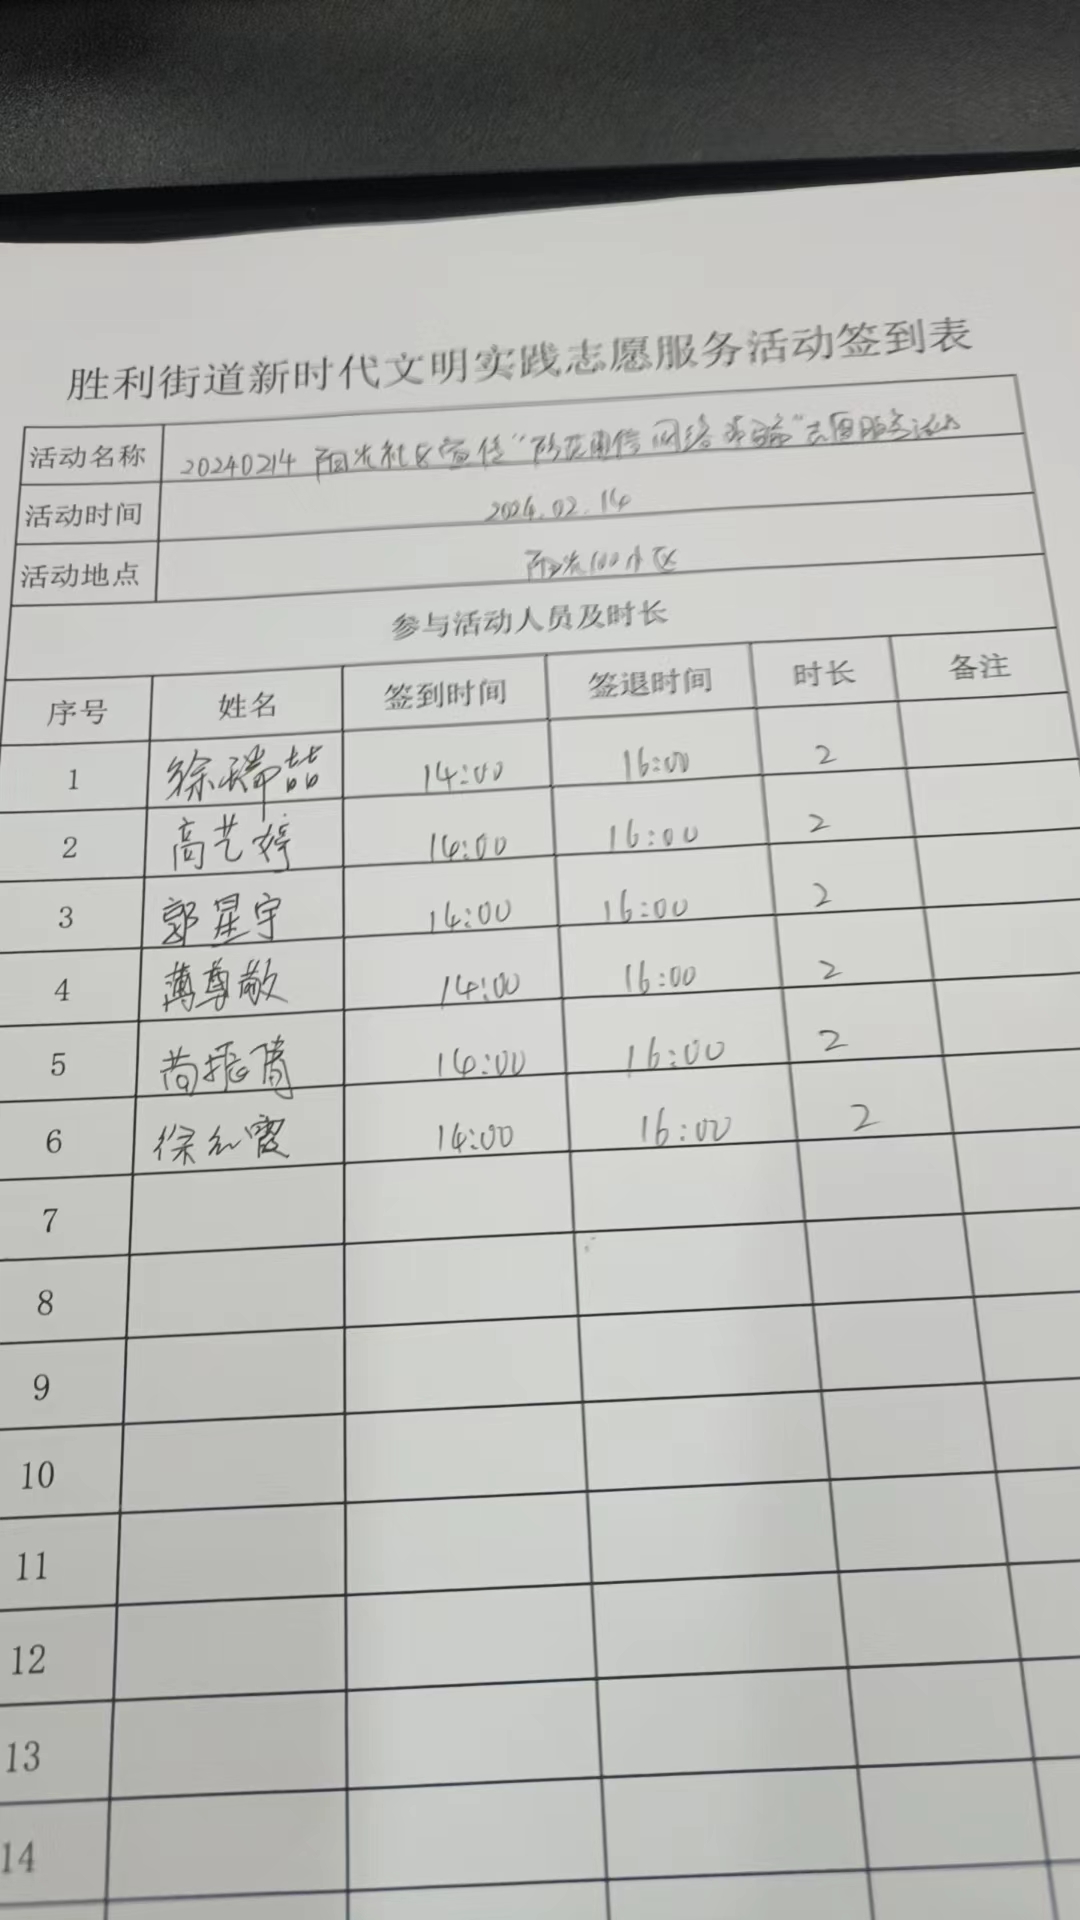 胜利街道新时代文明实践志愿服务活动签到表
活动名称 20240214 阳光社区宣传“防范电信网络诈骗”志愿服务活动
活动时间 2024.02.14
活动地点 阳光100小区
参与活动人员及时长
序号 姓名 签到时间 签退时间 时长 备注
1 徐瑞喆 14:00 16:00 2
2 高艺婷 14:00 16:00 2
3 郭星宇 14:00 16:00 2
4 薄尊敬 14:00 16:00 2
5 苘振 14:00 16:00 2
6 徐红霞 14:00 16:00 2
7
8
9
10
11
12
13
14